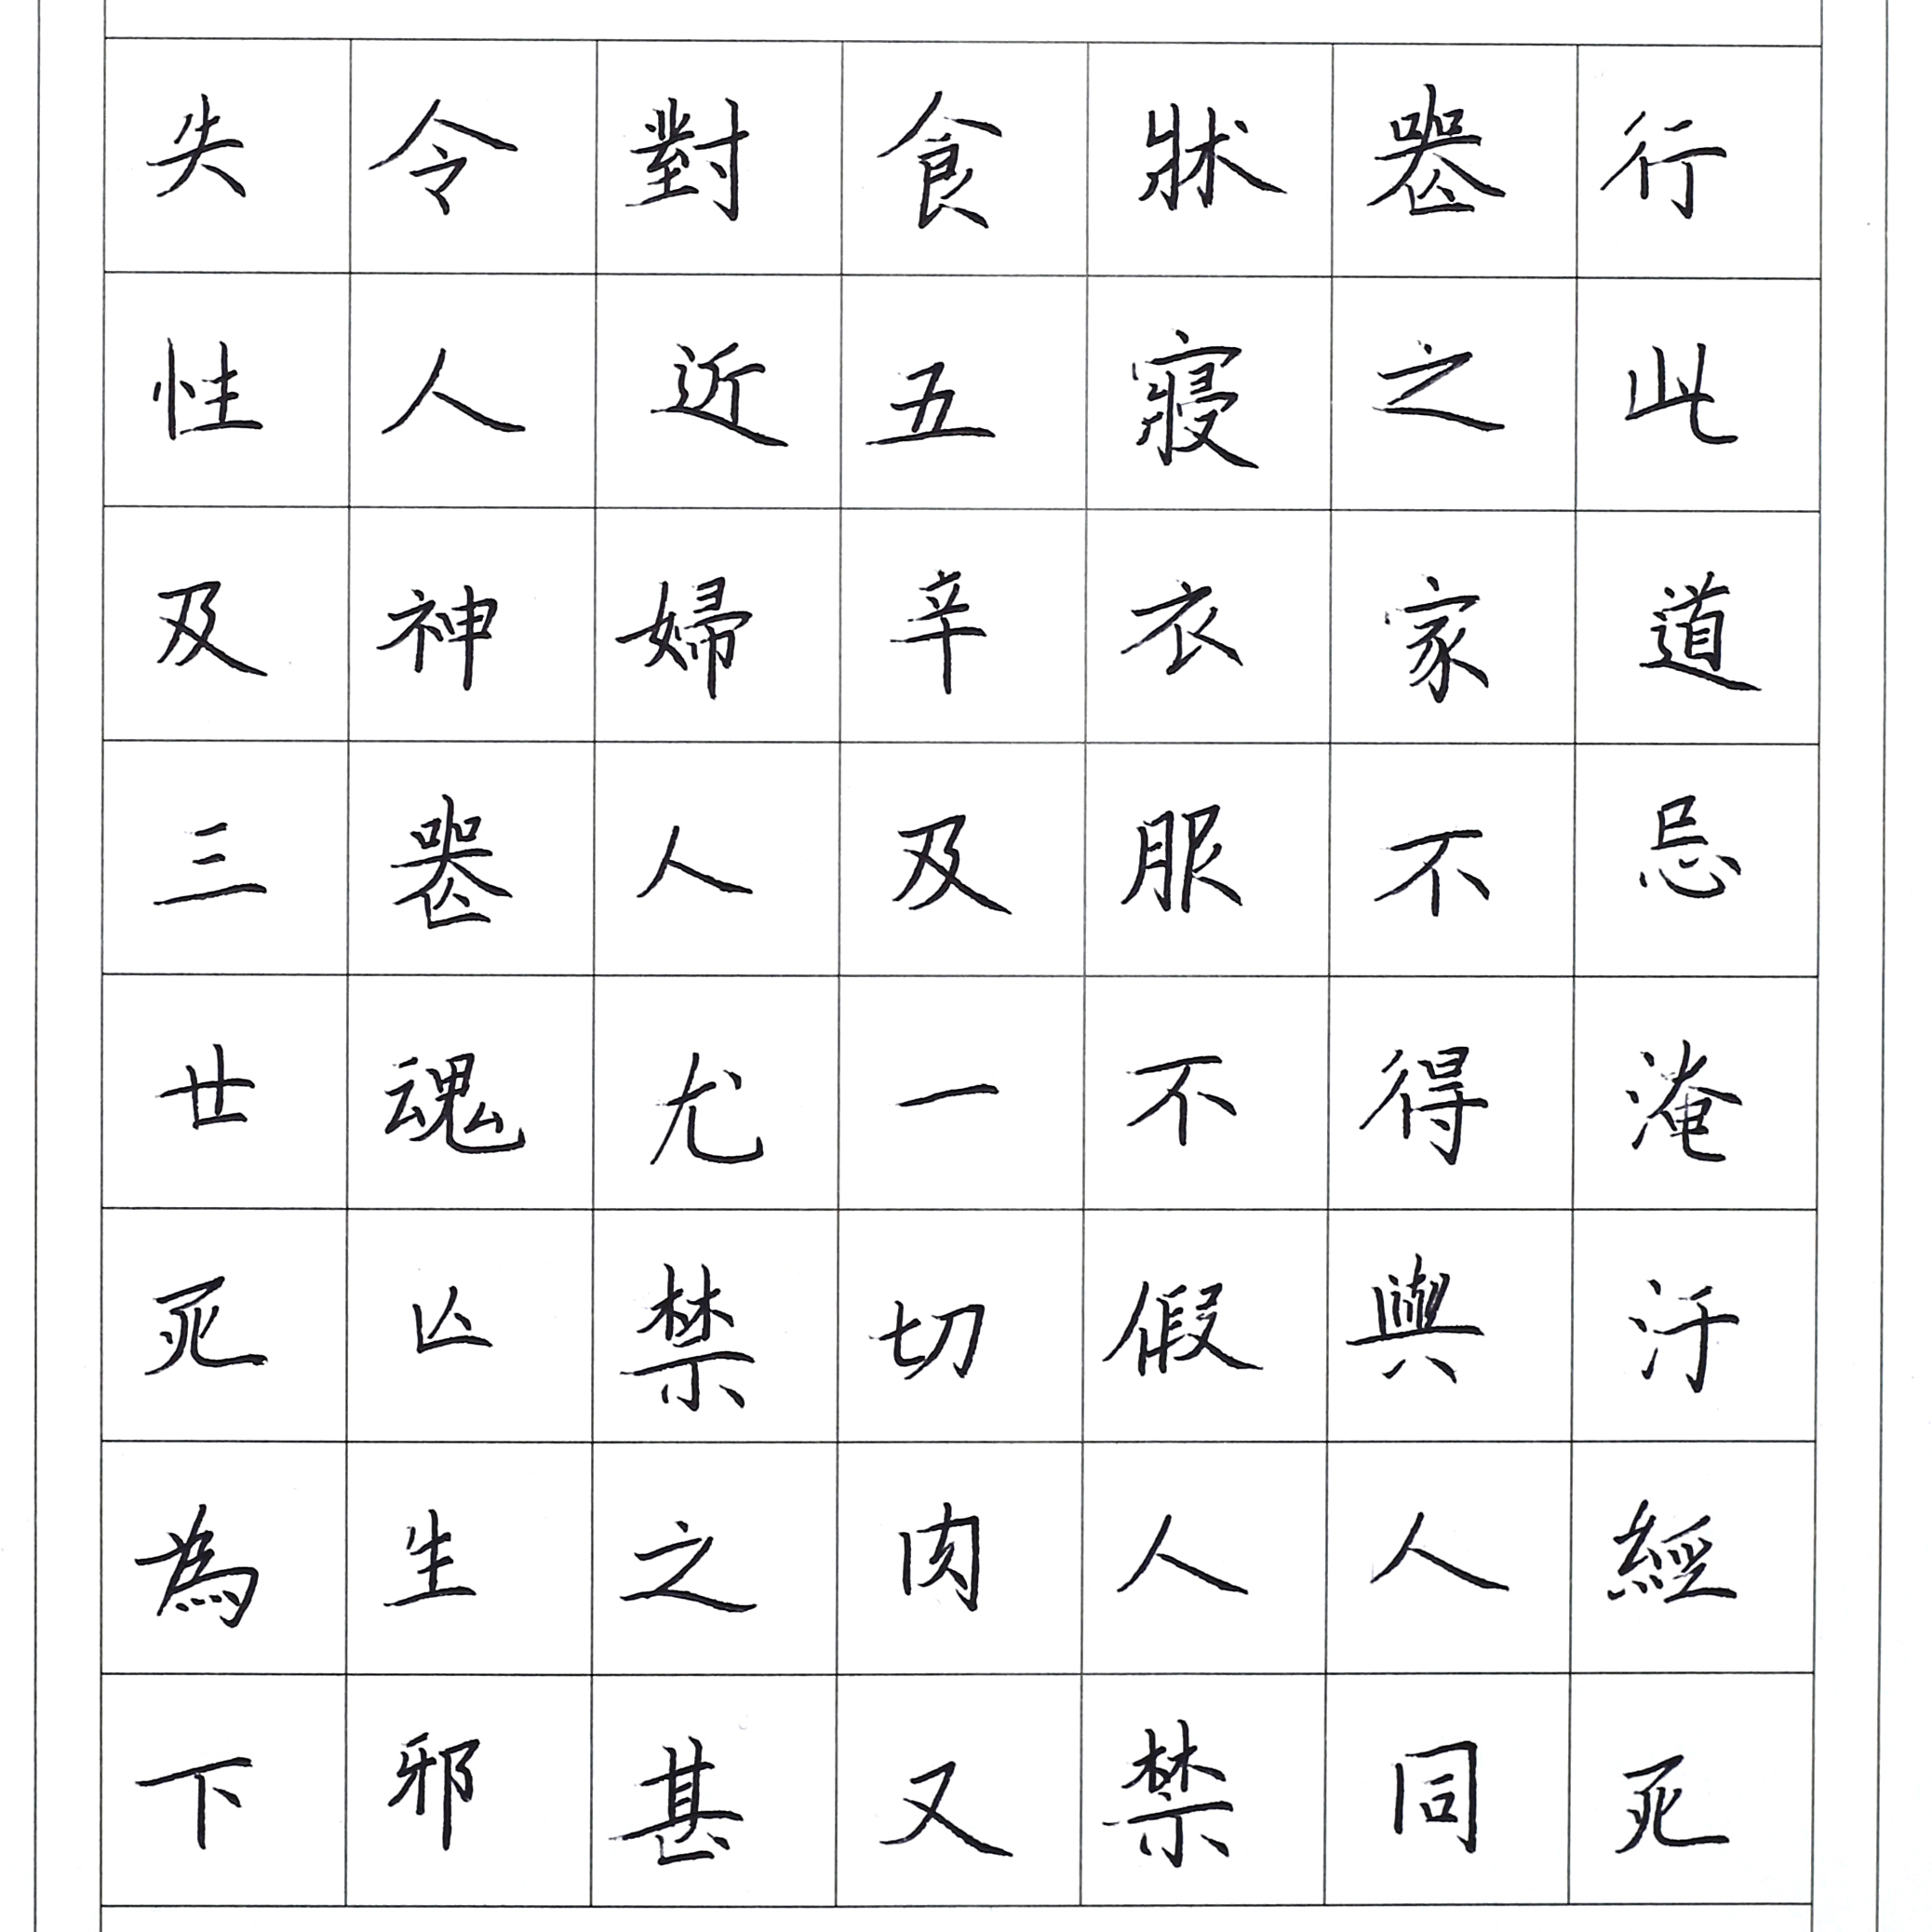 行此道忌淹汙經死
喪之家不得與人同
牀寢衣服不假人禁
食五辛及一切肉又
對近婦人尤禁之甚
令人神喪魂亡生邪
失性及三世死為下